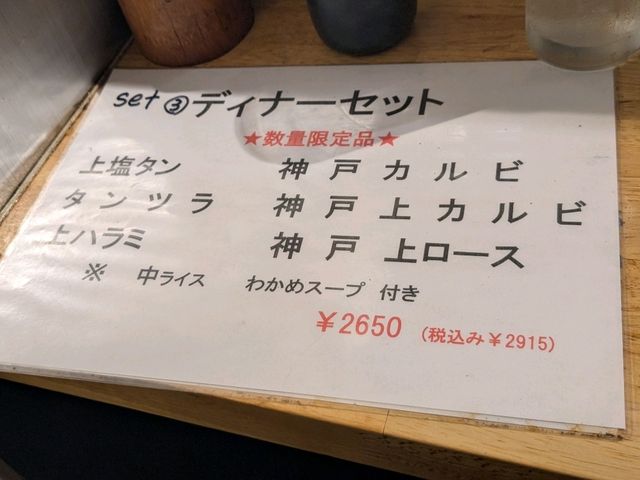 set ③ ディナーセット
★数量限定品★
上塩タン 神戸カルビ
タンツラ 神戸上カルビ
上ハラミ 神戸上ロース
※ 中ライス わかめスープ 付き
￥2650 (税込み￥2915)